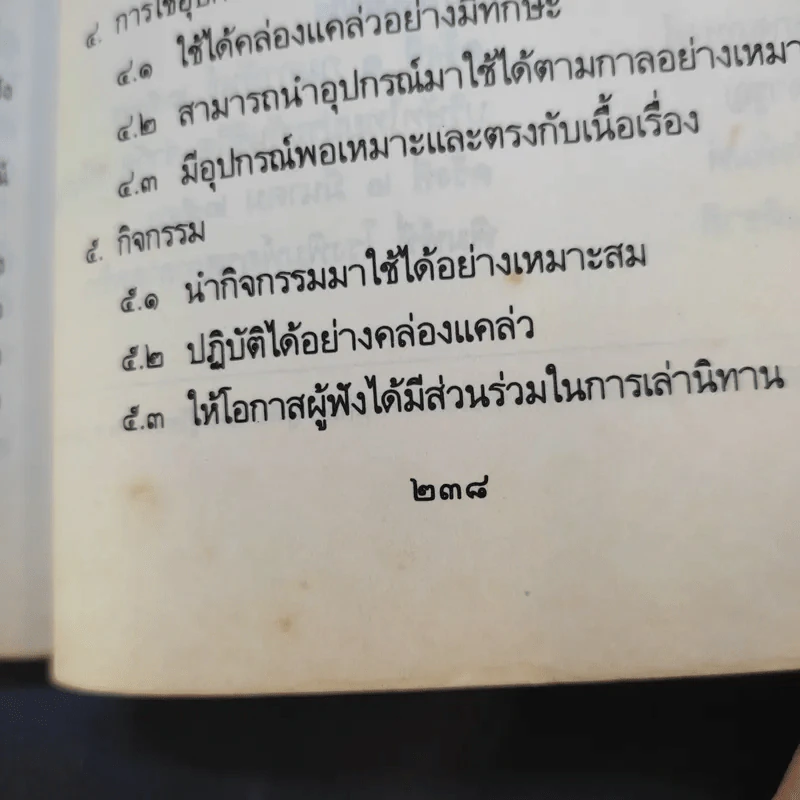 ๔. การใช้อุป
๔.๑ ใช้ได้คล่องแคล่วอย่างมีทักษะ
๔.๒ สามารถนำอุปกรณ์มาใช้ได้ตามกาลอย่างเหมา
๔.๓ มีอุปกรณ์พอเหมาะและตรงกับเนื้อเรื่อง
๕. กิจกรรม
๕.๑ นำกิจกรรมมาใช้ได้อย่างเหมาะสม
๕.๒ ปฏิบัติได้อย่างคล่องแคล่ว
๕.๓ ให้โอกาสผู้ฟังได้มีส่วนร่วมในการเล่านิทาน
๒๓๘